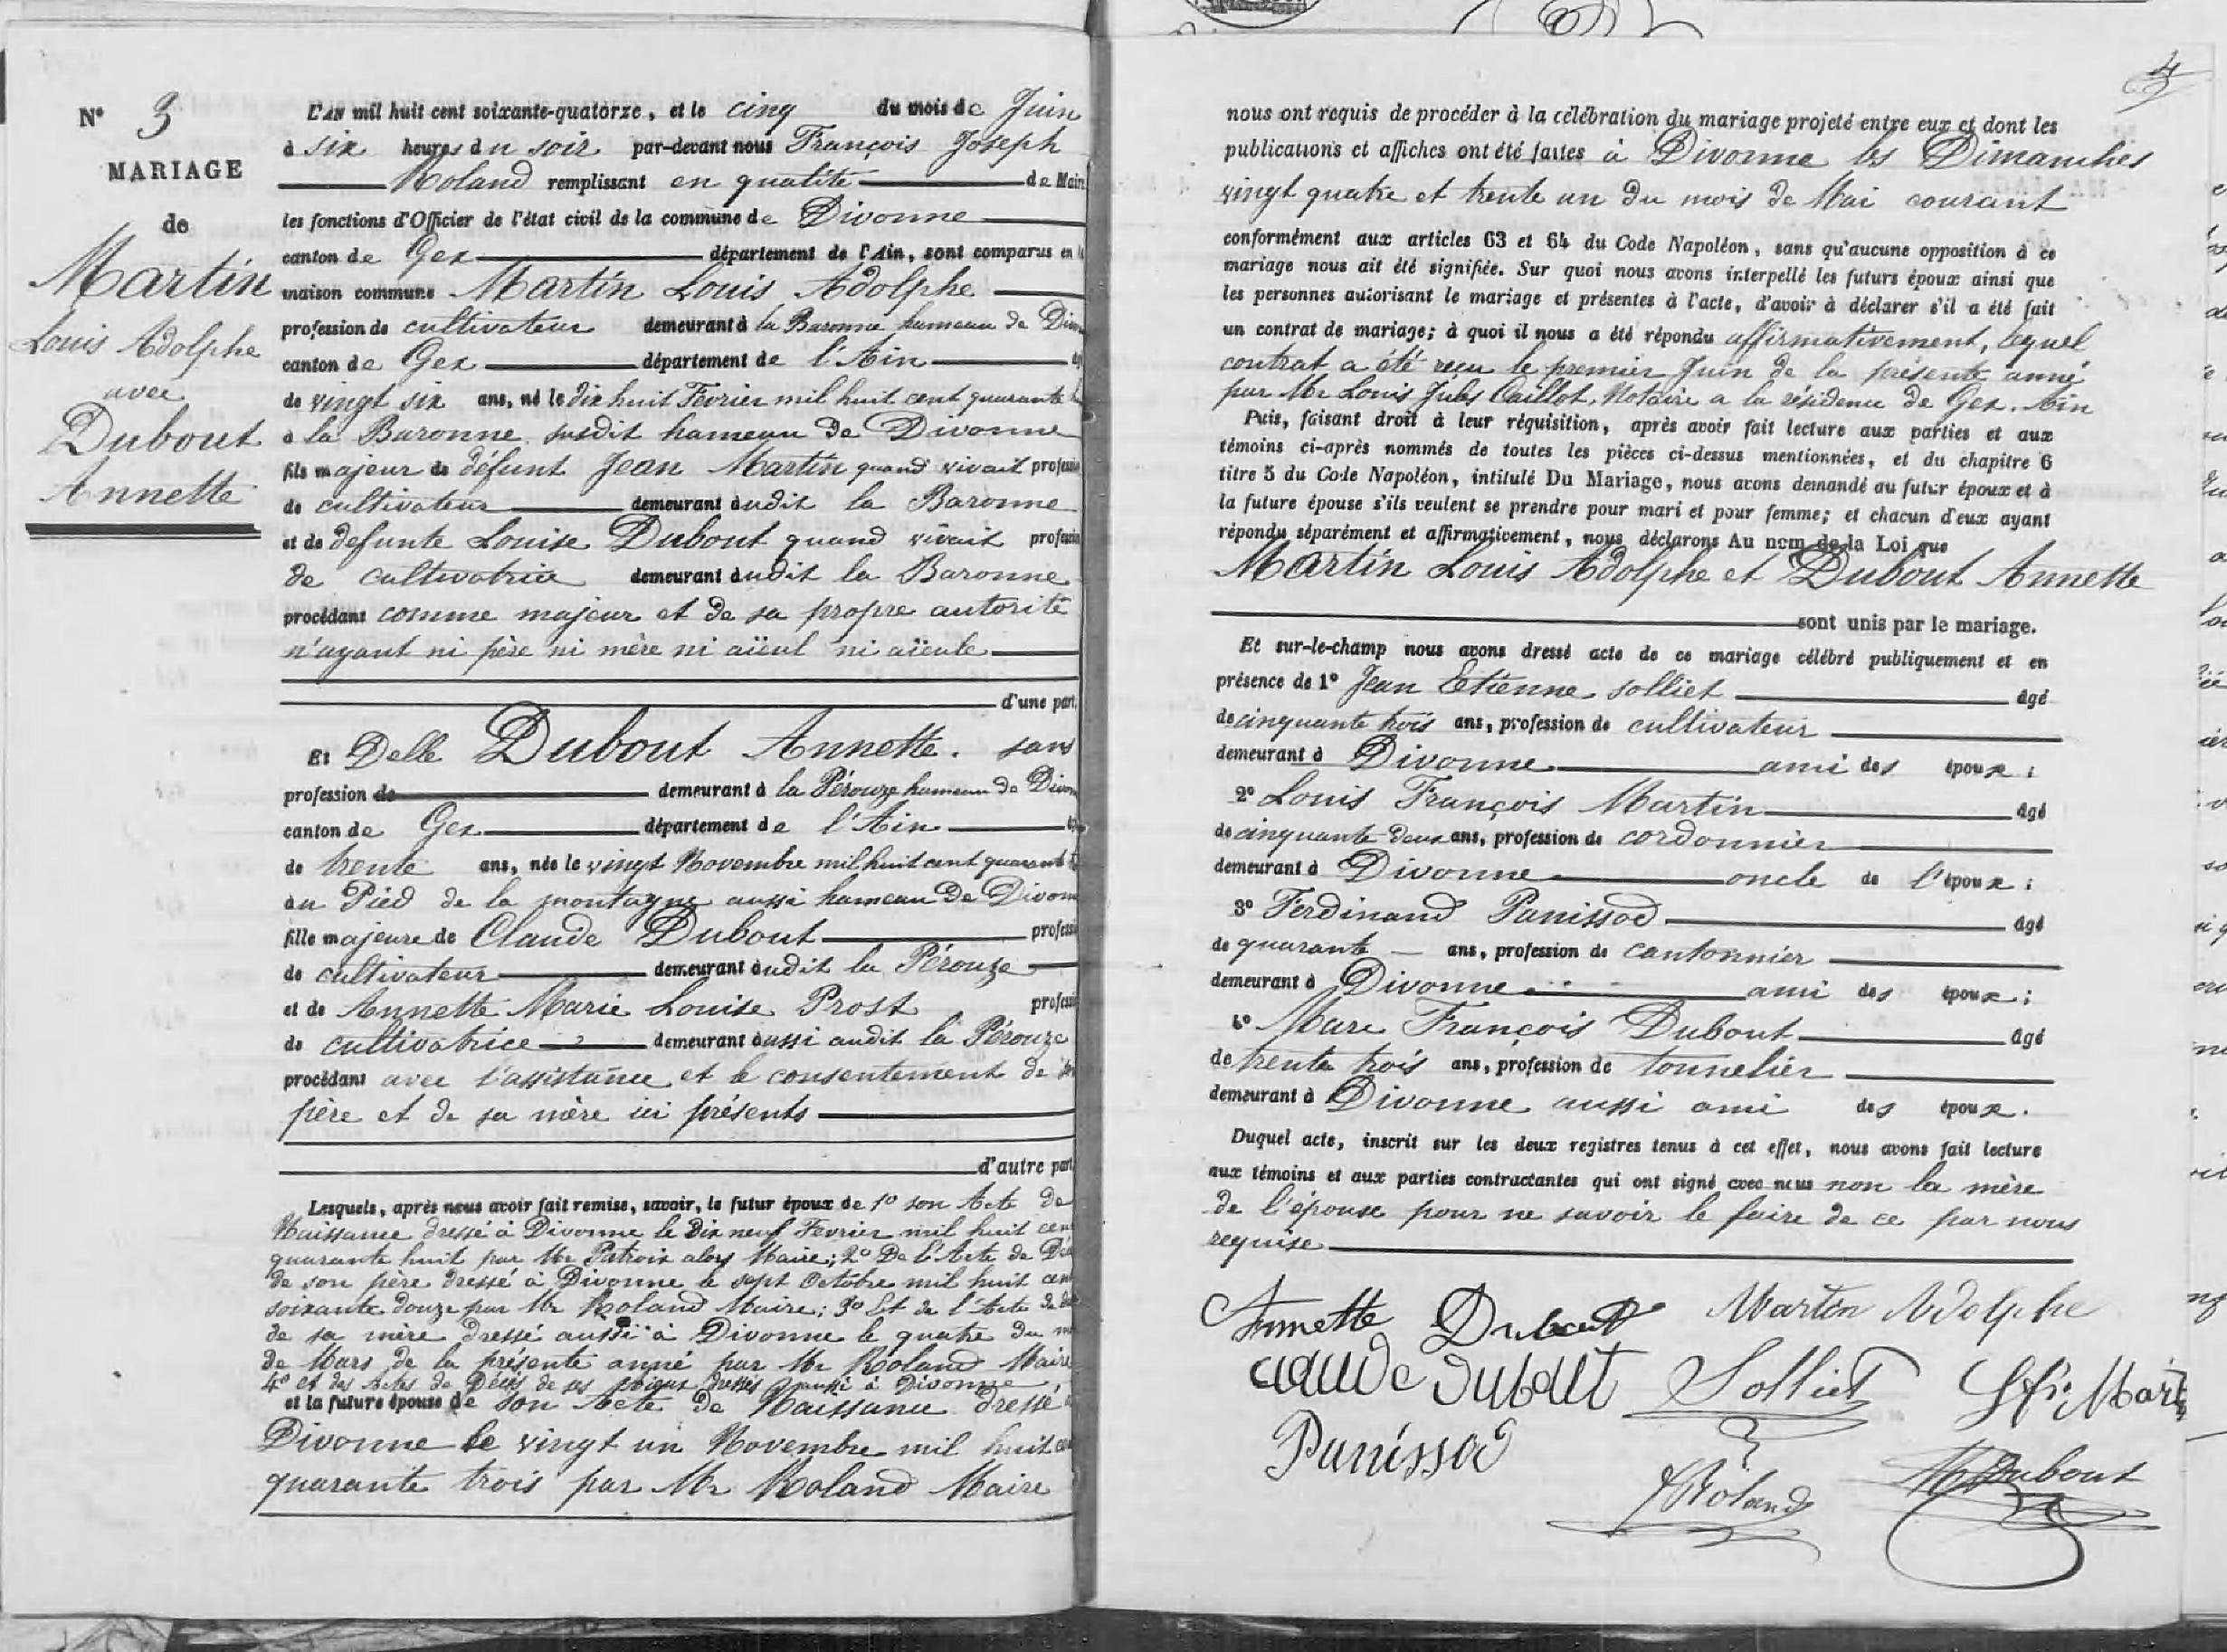 N° 3
MARIAGE
de
Martin
Louis Adolphe
avec
Dubout
Annette
L'AN mil huit cent soixante-quatorze, et le cinq du mois de Juin
à six heures du soir par-devant nous François Joseph
Roland remplissant en qualité de Mair
les fonctions d'Officier de l'état civil de la commune de Divonne
canton de Gex département de l'Ain, sont comparus en l
maison commune Martin Louis Adolphe
profession de cultivateur demeurant à la Baronne hameau de Divon
canton de Gex département de l'Ain
de vingt six ans, né le dix huit Février mil huit cent quarante
à la Baronne susdit hameau de Divonne
fils majeur de défunt Jean Martin quand vivait profession
de cultivateur demeurant audit la Baronne
et de defunte Louise Dubout quand vivait profession
de cultivatrice demeurant audit la Baronne
procédant comme majeur et de sa propre autorité
n'ayant ni père ni mère ni aïeul ni aïeule
d'une part.
Et Delle Dubout Annette. sans
profession de demeurant à la Pérouze hameau de Divon
canton de Gex département de l'Ain
de trente ans, née le vingt Novembre mil huit cent quarante
au Pied de la montagne aussi hameau de Divonn
fille majeure de Claude Dubout professi
de cultivateur demeurant audit la Pérouze
et de Annette Marie Louise Prost professi
de cultivatrice demeurant aussi audit la Pérouze
procédant avec l'assistance et le consentement de son
père et de sa mère ici présents
d'autre part
Lesquels, après nous avoir fait remise, savoir, le futur époux de 1° son Acte de
Naissance dressé à Divonne le Dix neuf Fevrier mil huit cent
quarante huit par Mr Patroix alors Maire; 2° De l'Acte de Déc
de son père dressé à Divonne le sept Octobre mil huit cent
soixante douze par Mr Roland Maire; 3° Et de l'Acte de
de sa mère dressé aussi à Divonne le quatre du m
de Mars de la présente anné par Mr Roland Maire
4° et des Actes de Décès de ses aieux dressés aussi à Divonne
et la future épouse de Son Acte de Naissance dressé à
Divonne le vingt un Novembre mil huit cen
quarante trois par Mr Roland Maire
4
nous ont requis de procéder à la célébration du mariage projeté entre eux et dont les
publications et affiches ont été faites à Divonne les Dimanches
vingt quatre et trente un du mois de Mai courant
conformément aux articles 63 et 64 du Code Napoléon, sans qu'aucune opposition à ce
mariage nous ait été signifiée. Sur quoi nous avons interpellé les futurs époux ainsi que
les personnes autorisant le mariage et présentes à l'acte, d'avoir à déclarer s'il a été fait
un contrat de mariage; à quoi il nous a été répondu affirmativement, lequel
contrat a été reçu le premier Juin de la présente anné
par Mr Louis Jules Caillot, Notaire a la résidence de Gex. Ain
Puis, faisant droit à leur réquisition, après avoir fait lecture aux parties et aux
témoins ci-après nommés de toutes les pièces ci-dessus mentionnées, et du chapitre 6
titre 5 du Code Napoléon, intitulé Du Mariage, nous avons demandé au futur époux et à
la future épouse s'ils veulent se prendre pour mari et pour femme; et chacun d'eux ayant
répondu séparément et affirmativement, nous déclarons Au nom de la Loi que
Martin Louis Adolphe et Dubout Annette
sont unis par le mariage.
Et sur-le-champ nous avons dressé acte de ce mariage célébré publiquement et en
présence de 1° Jean Etienne Solliet âgé
de cinquante trois ans, profession de cultivateur
demeurant à Divonne ami des époux;
2° Louis François Martin âgé
de cinquante-deux ans, profession de cordonnier
demeurant à Divonne oncle de l'époux;
3° Ferdinand Panissod âgé
de quarante ans, profession de cantonnier
demeurant à Divonne ami des époux;
4° Marc François Dubout âgé
de trente trois ans, profession de tonnelier
demeurant à Divonne aussi ami des époux.
Duquel acte, inscrit sur les deux registres tenus à cet effet, nous avons fait lecture
aux témoins et aux parties contractantes qui ont signé avec nous non la mère
de l'épouse pour ne savoir le faire de ce par nous
requise
Annette Dubout Martin Adolphe
Claude Dubout Solliet Ls Fs Mart
Panissod
FRoland M Dubout